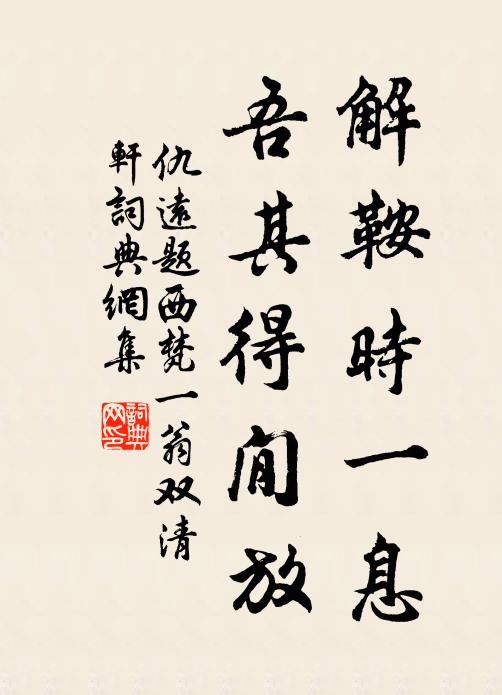 解鞍時一息
吾其得閒放
仇遠題西梵一翁双清
軒詞典網集
詞典网印